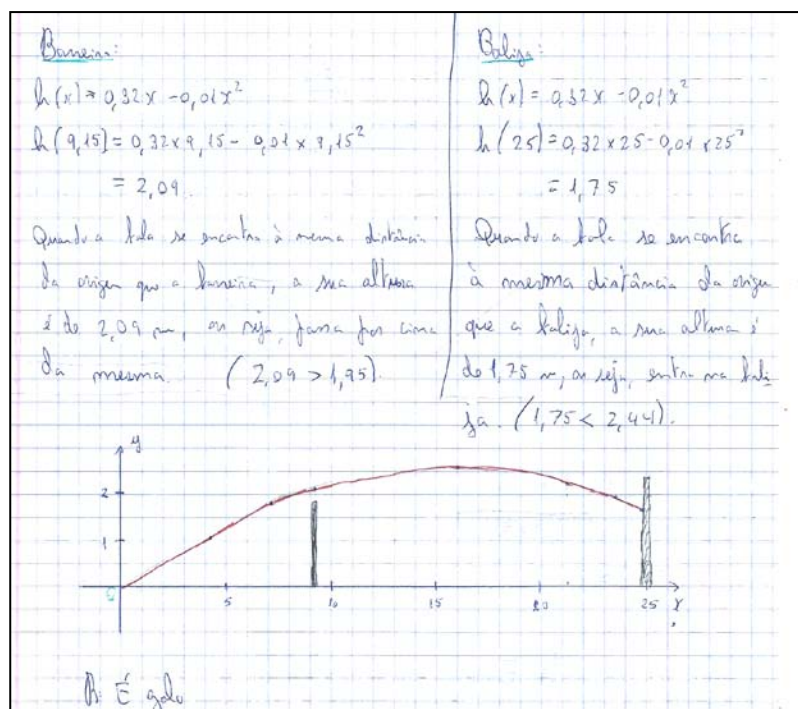 Barreira:
h(x) = 0,32x - 0,01x²
h(9,15) = 0,32 x 9,15 - 0,01 x 9,15²
= 2,09
Quando a bola se encontra à mesma distância
da origem que a barreira, a sua altura
é de 2,09 m, ou seja, passa por cima
da mesma. (2,09 > 1,95).
Baliza:
h(x) = 0,32x - 0,01x²
h(25) = 0,32 x 25 - 0,01 x 25²
= 1,75
Quando a bola se encontra
à mesma distância da origem
que a baliza, a sua altura é
de 1,75 m, ou seja, entra na bali-
za. (1,75 < 2,44).
y
2
1
0
5
10
15
20
25
x
R: É golo